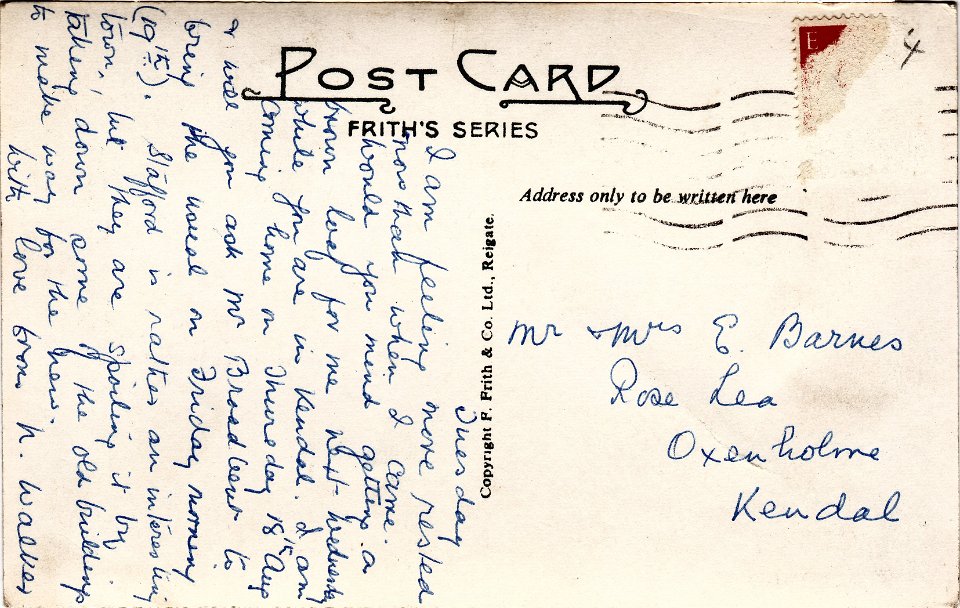 POST CARD
FRITH'S SERIES
Address only to be written here
Copyright F. Frith & Co. Ltd., Reigate.
Tuesday
I am feeling more rested
now than when I came.
Would you mind getting a
brown loaf for me next Wednesday
while you are in Kendal. I am
coming home on Thursday 18th Aug
& will you ask Mr Broadbent to
bring the usual on Friday morning
(19th). Stafford is rather an interesting
town, but they are spoiling it by
taking down some of the old buildings
to make way for the new.
With love from N. Walker
Mr & Mrs E. Barnes
Rose Lea
Oxenholme
Kendal
E